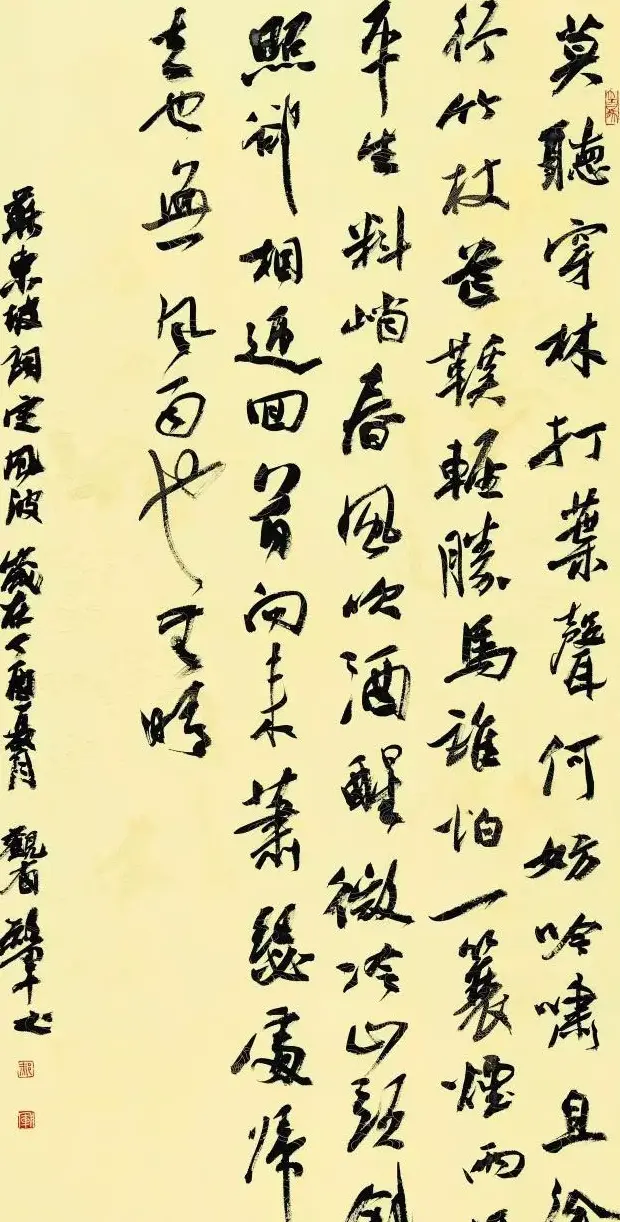 莫聽穿林打葉聲何妨吟嘯且徐
行竹杖芒鞵輕勝馬誰怕一蓑煙雨
平生料峭春風吹酒醒微冷山頭斜
照卻相迎回首向來蕭瑟處歸
去也無風雨也无晴
蘇東坡詞定風波 歲在丁酉夏月